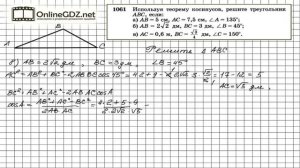 OnlineGDZ.net
1061 Используя теорему косинусов, решите треугольник
ABC, если:
а) AB = 5 см, AC = 7,5 см, ∠A = 135°;
б) AB = 2√2 дм, BC = 3 дм, ∠B = 45°;
в) AC = 0,6 м, BC = √3/4 дм, ∠C = 150°.
B
A
C
Решить Δ ABC
б) AB = 2√2 дм, BC = 3 дм. ∠B = 45°
AC² = AB² + BC² - 2AB·BC cos45° = 4·2 + 9 - 2·2√2·3·√2/2 = 17 - 12 = 5
BC² = AB² + AC² - 2AB·AC cosA
AC = √5 дм.
cosA = AB² + AC² - BC² / 2AB·AC = 4·2 + 5 - 9 / 2·2√2·√5 =